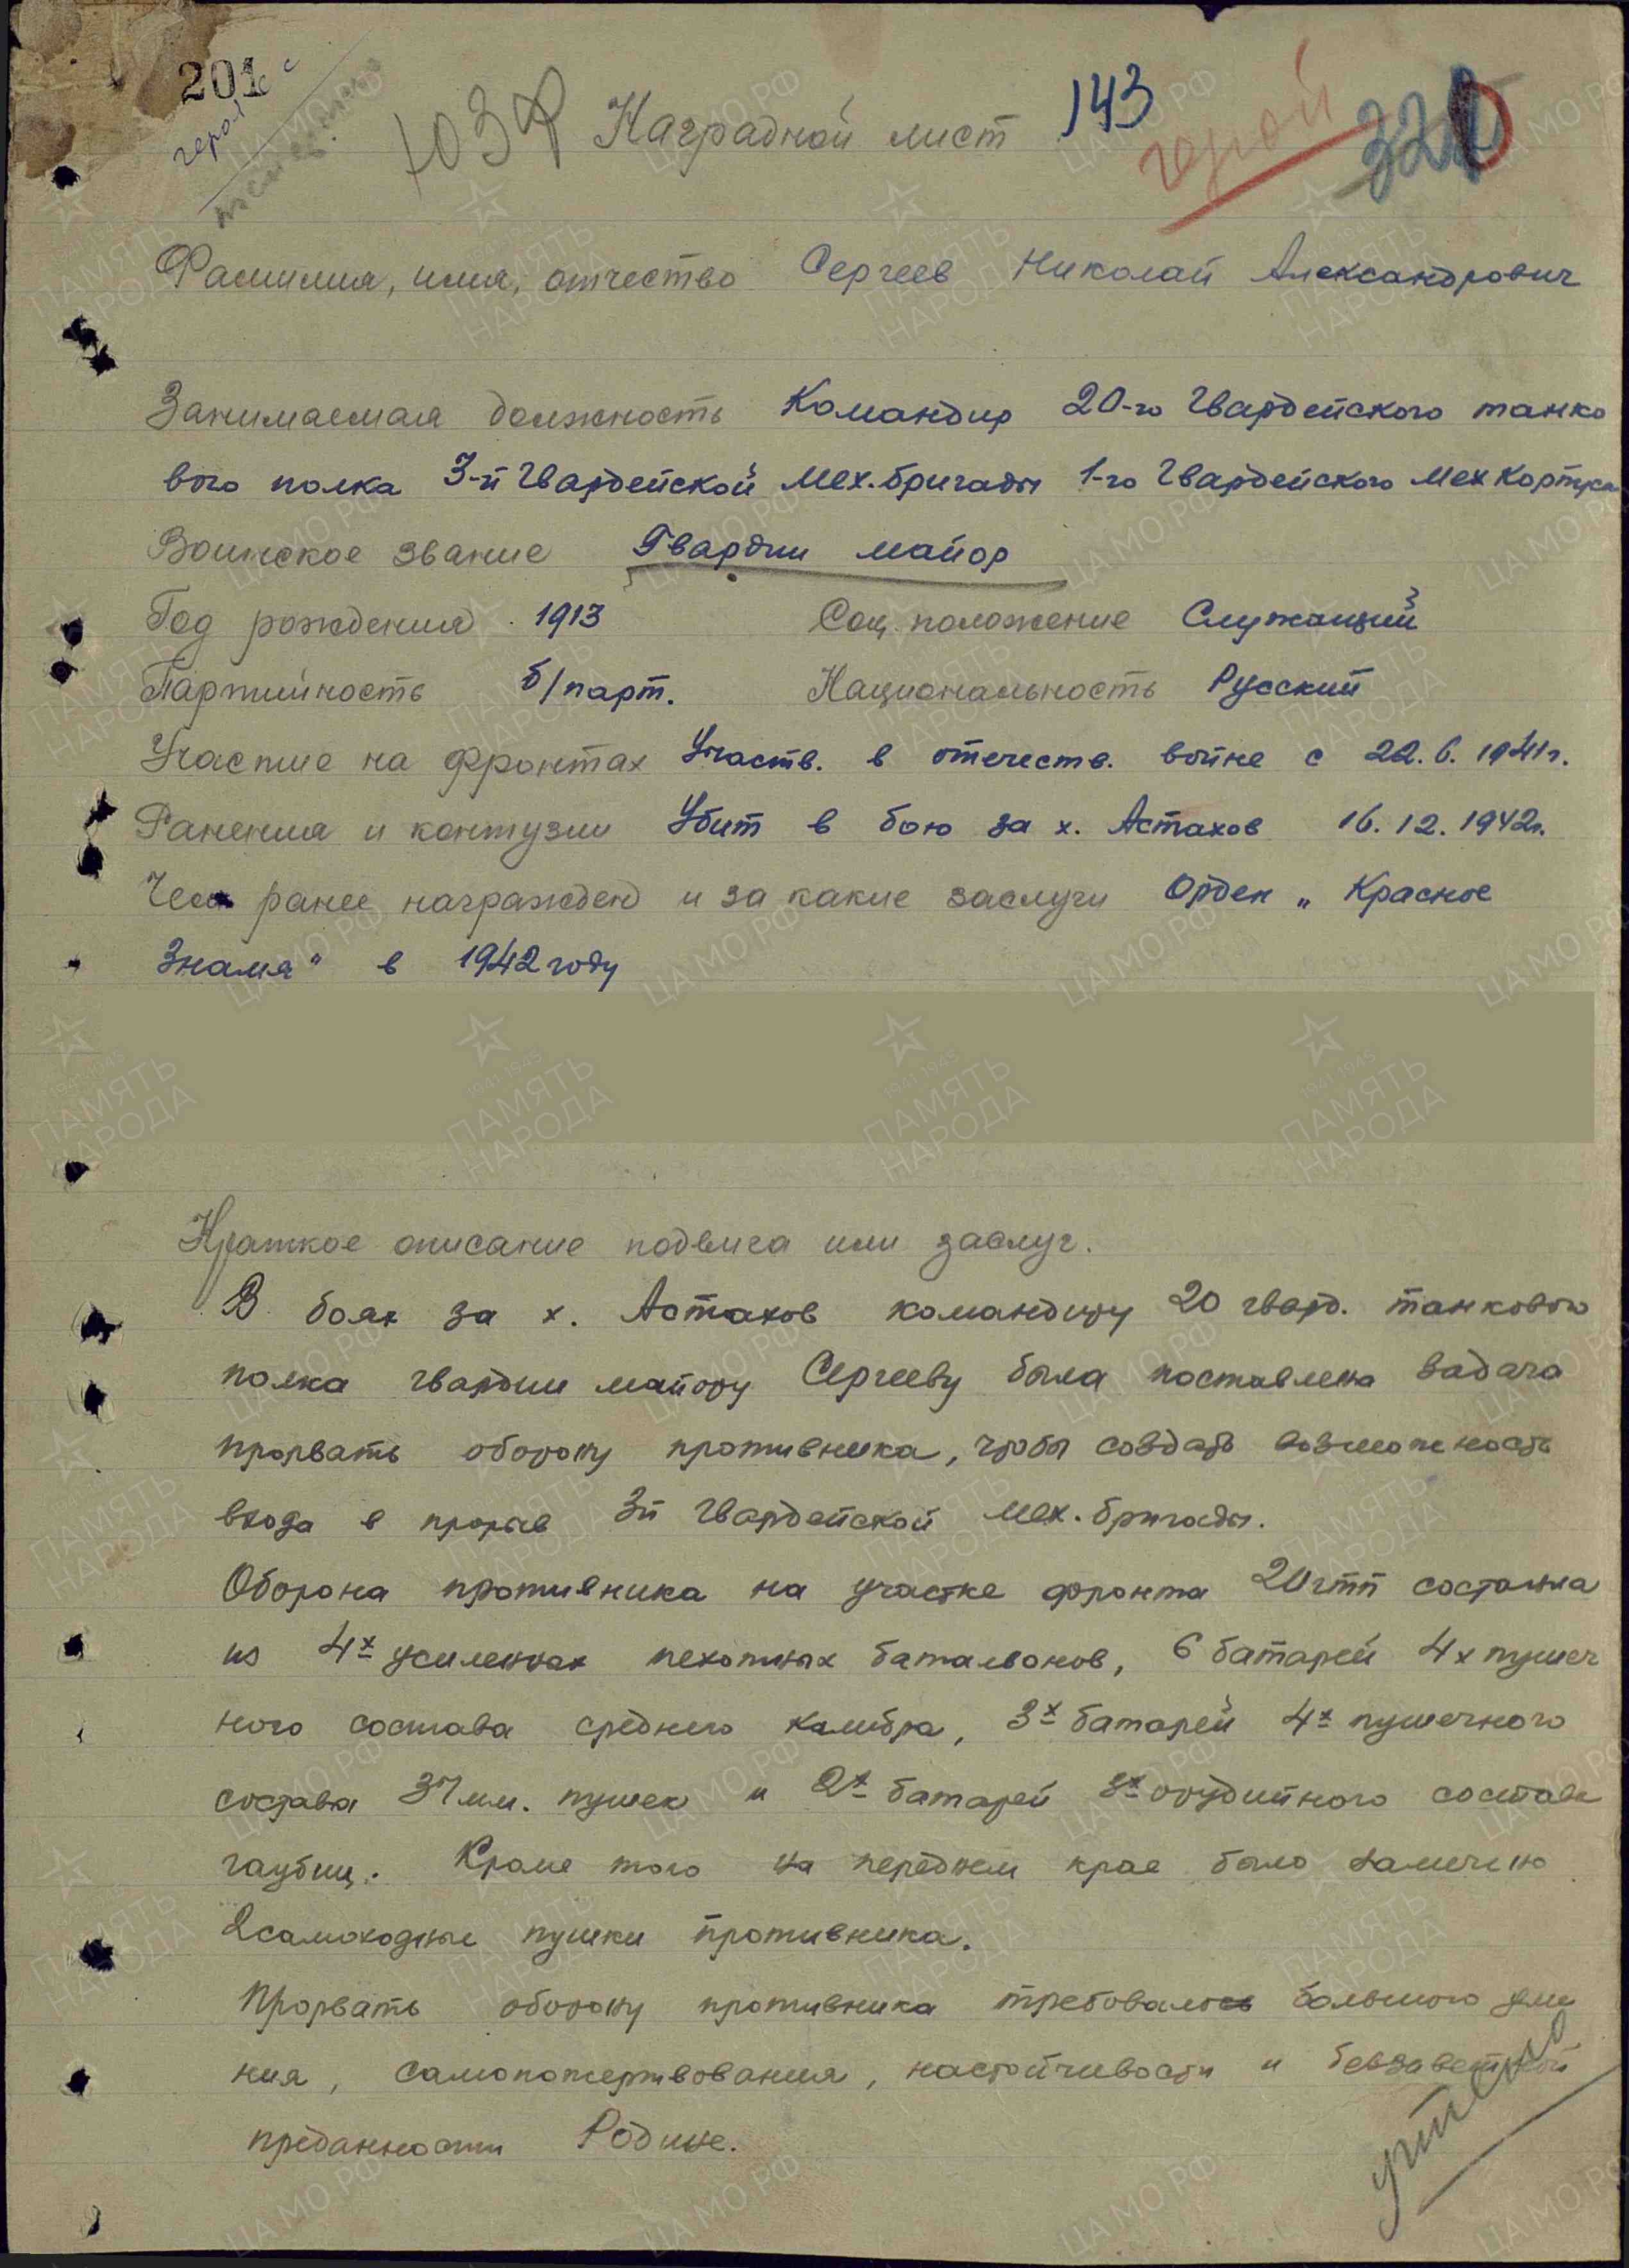 201
герой
143
герой
Наградной лист
Фамилия, имя, отчество Сергеев Николай Александрович
Занимаемая должность Командир 20-го Гвардейского танко
вого полка 3-й Гвардейской мех.бригады 1-го Гвардейского МехКорпуса
Воинское звание Гвардии майор
Год рождения 1913 Соц. положение Служащий
Партийность б/парт. Национальность Русский
Участие на фронтах Участв. в отечеств. войне с 22.6.1941г.
Ранения и контузии Убит в бою за х. Астахов 16.12.1942г.
Чем ранее награжден и за какие заслуги Орден „Красное
Знамя" в 1942 году
Краткое описание подвига или заслуг.
В боях за х. Астахов командиру 20 гвард. танкового
полка гвардии майору Сергееву была поставлена задача
прорвать оборону противника, чтобы создать возможность
входа в прорыв 3й Гвардейской мех. бригады.
Оборона противника на участке фронта 20гтп состояла
из 4х усиленных пехотных батальонов, 6 батарей 4х пушеч
ного состава среднего калибра, 3х батарей 4х пушечного
состава 37мм. пушек и 2х батарей 3х орудийного состава
гаубиц. Кроме того на переднем крае было замечено
2 самоходные пушки противника.
Прорвать оборону противника требовалось большого уме
ния, самопожертвования, настойчивости и беззаветной
преданности Родине.
учтено
ПАМЯТЬ НАРОДА
1941-1945
ЦАМО РФ